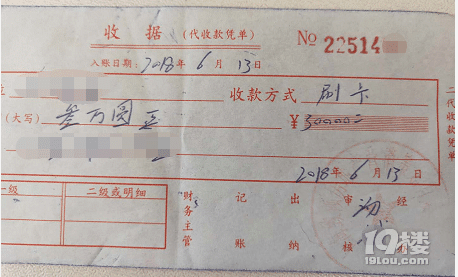 收据 (代收款凭单) № 22514
入账日期: 2018年 6月 13日
收款方式 刷卡
(大写) 叁万圆正 ¥30000
2018年 6月 13日
一级 二级或明细
财务主管 记账 出纳 审核 经
19楼
19lou.com